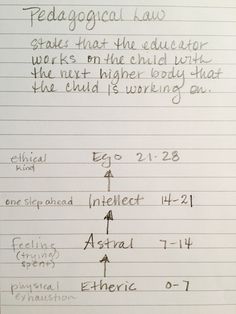 Pedagogical Law
states that the educator
works on the child with
the next higher body that
the child is working on.
ethical
kind
Ego 21-28
one step ahead Intellect 14-21
Feeling
(trying)
spent)
Astral 7-14
physical
exhaustion
Etheric 0-7